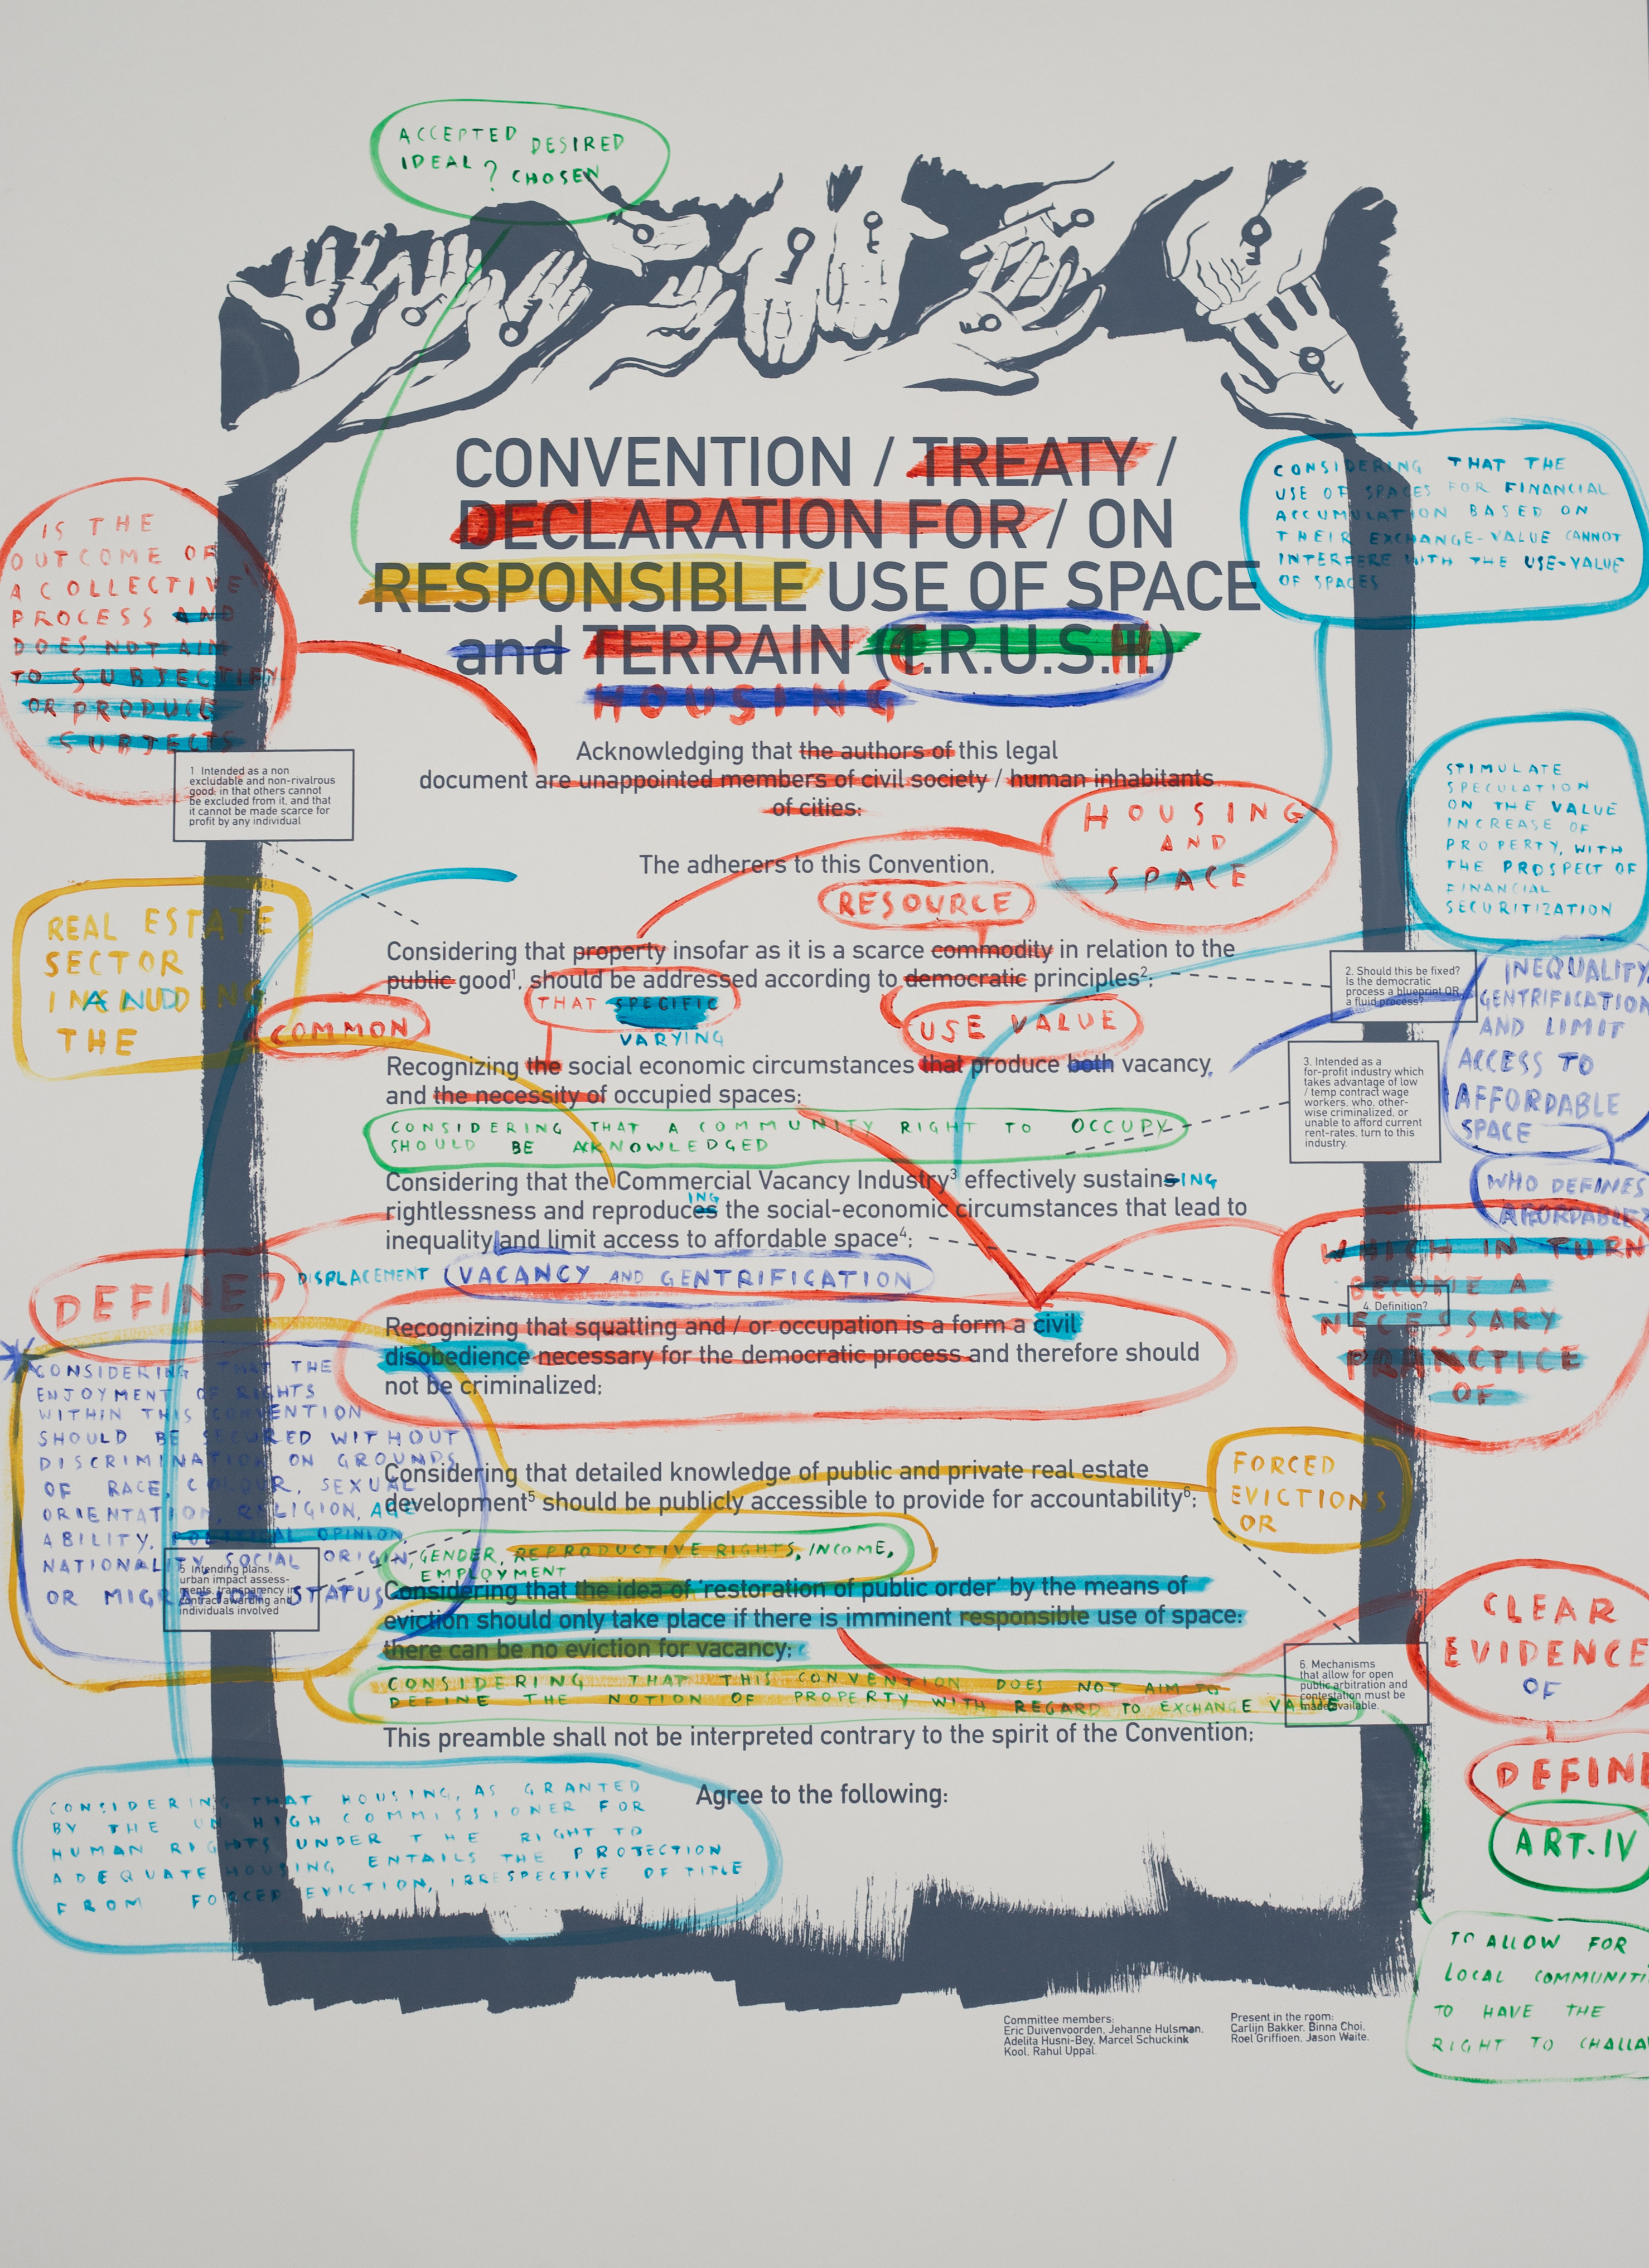 ACCEPTED DESIRED
IDEAL? CHOSEN
CONVENTION / TREATY /
DECLARATION FOR / ON
RESPONSIBLE USE OF SPACE
and TERRAIN (C.R.U.S.H.)
HOUSING
CONSIDERING THAT THE
USE OF SPACES FOR FINANCIAL
ACCUMULATION BASED ON
THEIR EXCHANGE-VALUE CANNOT
INTERFERE WITH THE USE-VALUE
OF SPACES
IS THE
OUTCOME OF
A COLLECTIVE
PROCESS AND
DOES NOT AIM
TO SUBJECTIFY
OR PRODUCE
SUBJECTS
Acknowledging that the authors of this legal
document are unappointed members of civil society / human inhabitants
of cities:
1 Intended as a non
excludable and non-rivalrous
good: in that others cannot
be excluded from it, and that
it cannot be made scarce for
profit by any individual
HOUSING
AND
SPACE
STIMULATE
SPECULATION
ON THE VALUE
INCREASE OF
PROPERTY, WITH
THE PROSPECT OF
FINANCIAL
SECURITIZATION
The adherers to this Convention,
RESOURCE
Considering that property insofar as it is a scarce commodity in relation to the
public good1, should be addressed according to democratic principles2;
2. Should this be fixed?
Is the democratic
process a blueprint OR
a fluid process?
REAL ESTATE
SECTOR
INCLUDING
AND
THE
COMMON
THAT SPECIFIC
VARYING
USE VALUE
INEQUALITY,
GENTRIFICATION
AND LIMIT
ACCESS TO
AFFORDABLE
SPACE
Recognizing the social economic circumstances that produce both vacancy,
and the necessity of occupied spaces;
3. Intended as a
for-profit industry which
takes advantage of low
/ temp contract wage
workers, who, other-
wise criminalized, or
unable to afford current
rent-rates, turn to this
industry.
CONSIDERING THAT A COMMUNITY RIGHT TO OCCUPY
SHOULD BE ACKNOWLEDGED
WHO DEFINES
AFFORDABLE?
Considering that the Commercial Vacancy Industry3 effectively sustains ING
ING
rightlessness and reproduces the social-economic circumstances that lead to
inequality and limit access to affordable space4;
DISPLACEMENT (VACANCY AND GENTRIFICATION
DEFINED
WHICH IN TURN
BECOME A
NECESSARY
PRACTICE
OF
4. Definition?
Recognizing that squatting and / or occupation is a form a civil
disobedience necessary for the democratic process and therefore should
not be criminalized;
CONSIDERING THAT THE
ENJOYMENT OF RIGHTS
WITHIN THIS CONVENTION
SHOULD BE SECURED WITHOUT
DISCRIMINATION ON GROUNDS
OF RACE, COLOUR, SEXUAL
ORIENTATION, RELIGION, AGE
ABILITY, POLITICAL OPINION,
NATIONALITY, SOCIAL ORIGIN,
OR MIGRATION STATUS
FORCED
EVICTIONS
OR
Considering that detailed knowledge of public and private real estate
development5 should be publicly accessible to provide for accountability6;
GENDER, REPRODUCTIVE RIGHTS, INCOME,
EMPLOYMENT
5 Intending plans,
urban impact assess-
ments, transparency in
contract awarding and
individuals involved
Considering that the idea of 'restoration of public order' by the means of
eviction should only take place if there is imminent responsible use of space:
there can be no eviction for vacancy;
CLEAR
EVIDENCE
OF
6. Mechanisms
that allow for open
public arbitration and
contestation must be
made available.
CONSIDERING THAT THIS CONVENTION DOES NOT AIM TO
DEFINE THE NOTION OF PROPERTY WITH REGARD TO EXCHANGE VALUE
This preamble shall not be interpreted contrary to the spirit of the Convention;
DEFINE
Agree to the following:
ART. IV
CONSIDERING THAT HOUSING, AS GRANTED
BY THE UN HIGH COMMISSIONER FOR
HUMAN RIGHTS UNDER THE RIGHT TO
ADEQUATE HOUSING ENTAILS THE PROTECTION
FROM FORCED EVICTION, IRRESPECTIVE OF TITLE
TO ALLOW FOR
LOCAL COMMUNITI
TO HAVE THE
RIGHT TO CHALLA
Committee members:
Eric Duivenvoorden, Jehanne Hulsman,
Adelita Husni-Bey, Marcel Schuckink
Kool, Rahul Uppal.
Present in the room:
Carlijn Bakker, Binna Choi,
Roel Griffioen, Jason Waite.